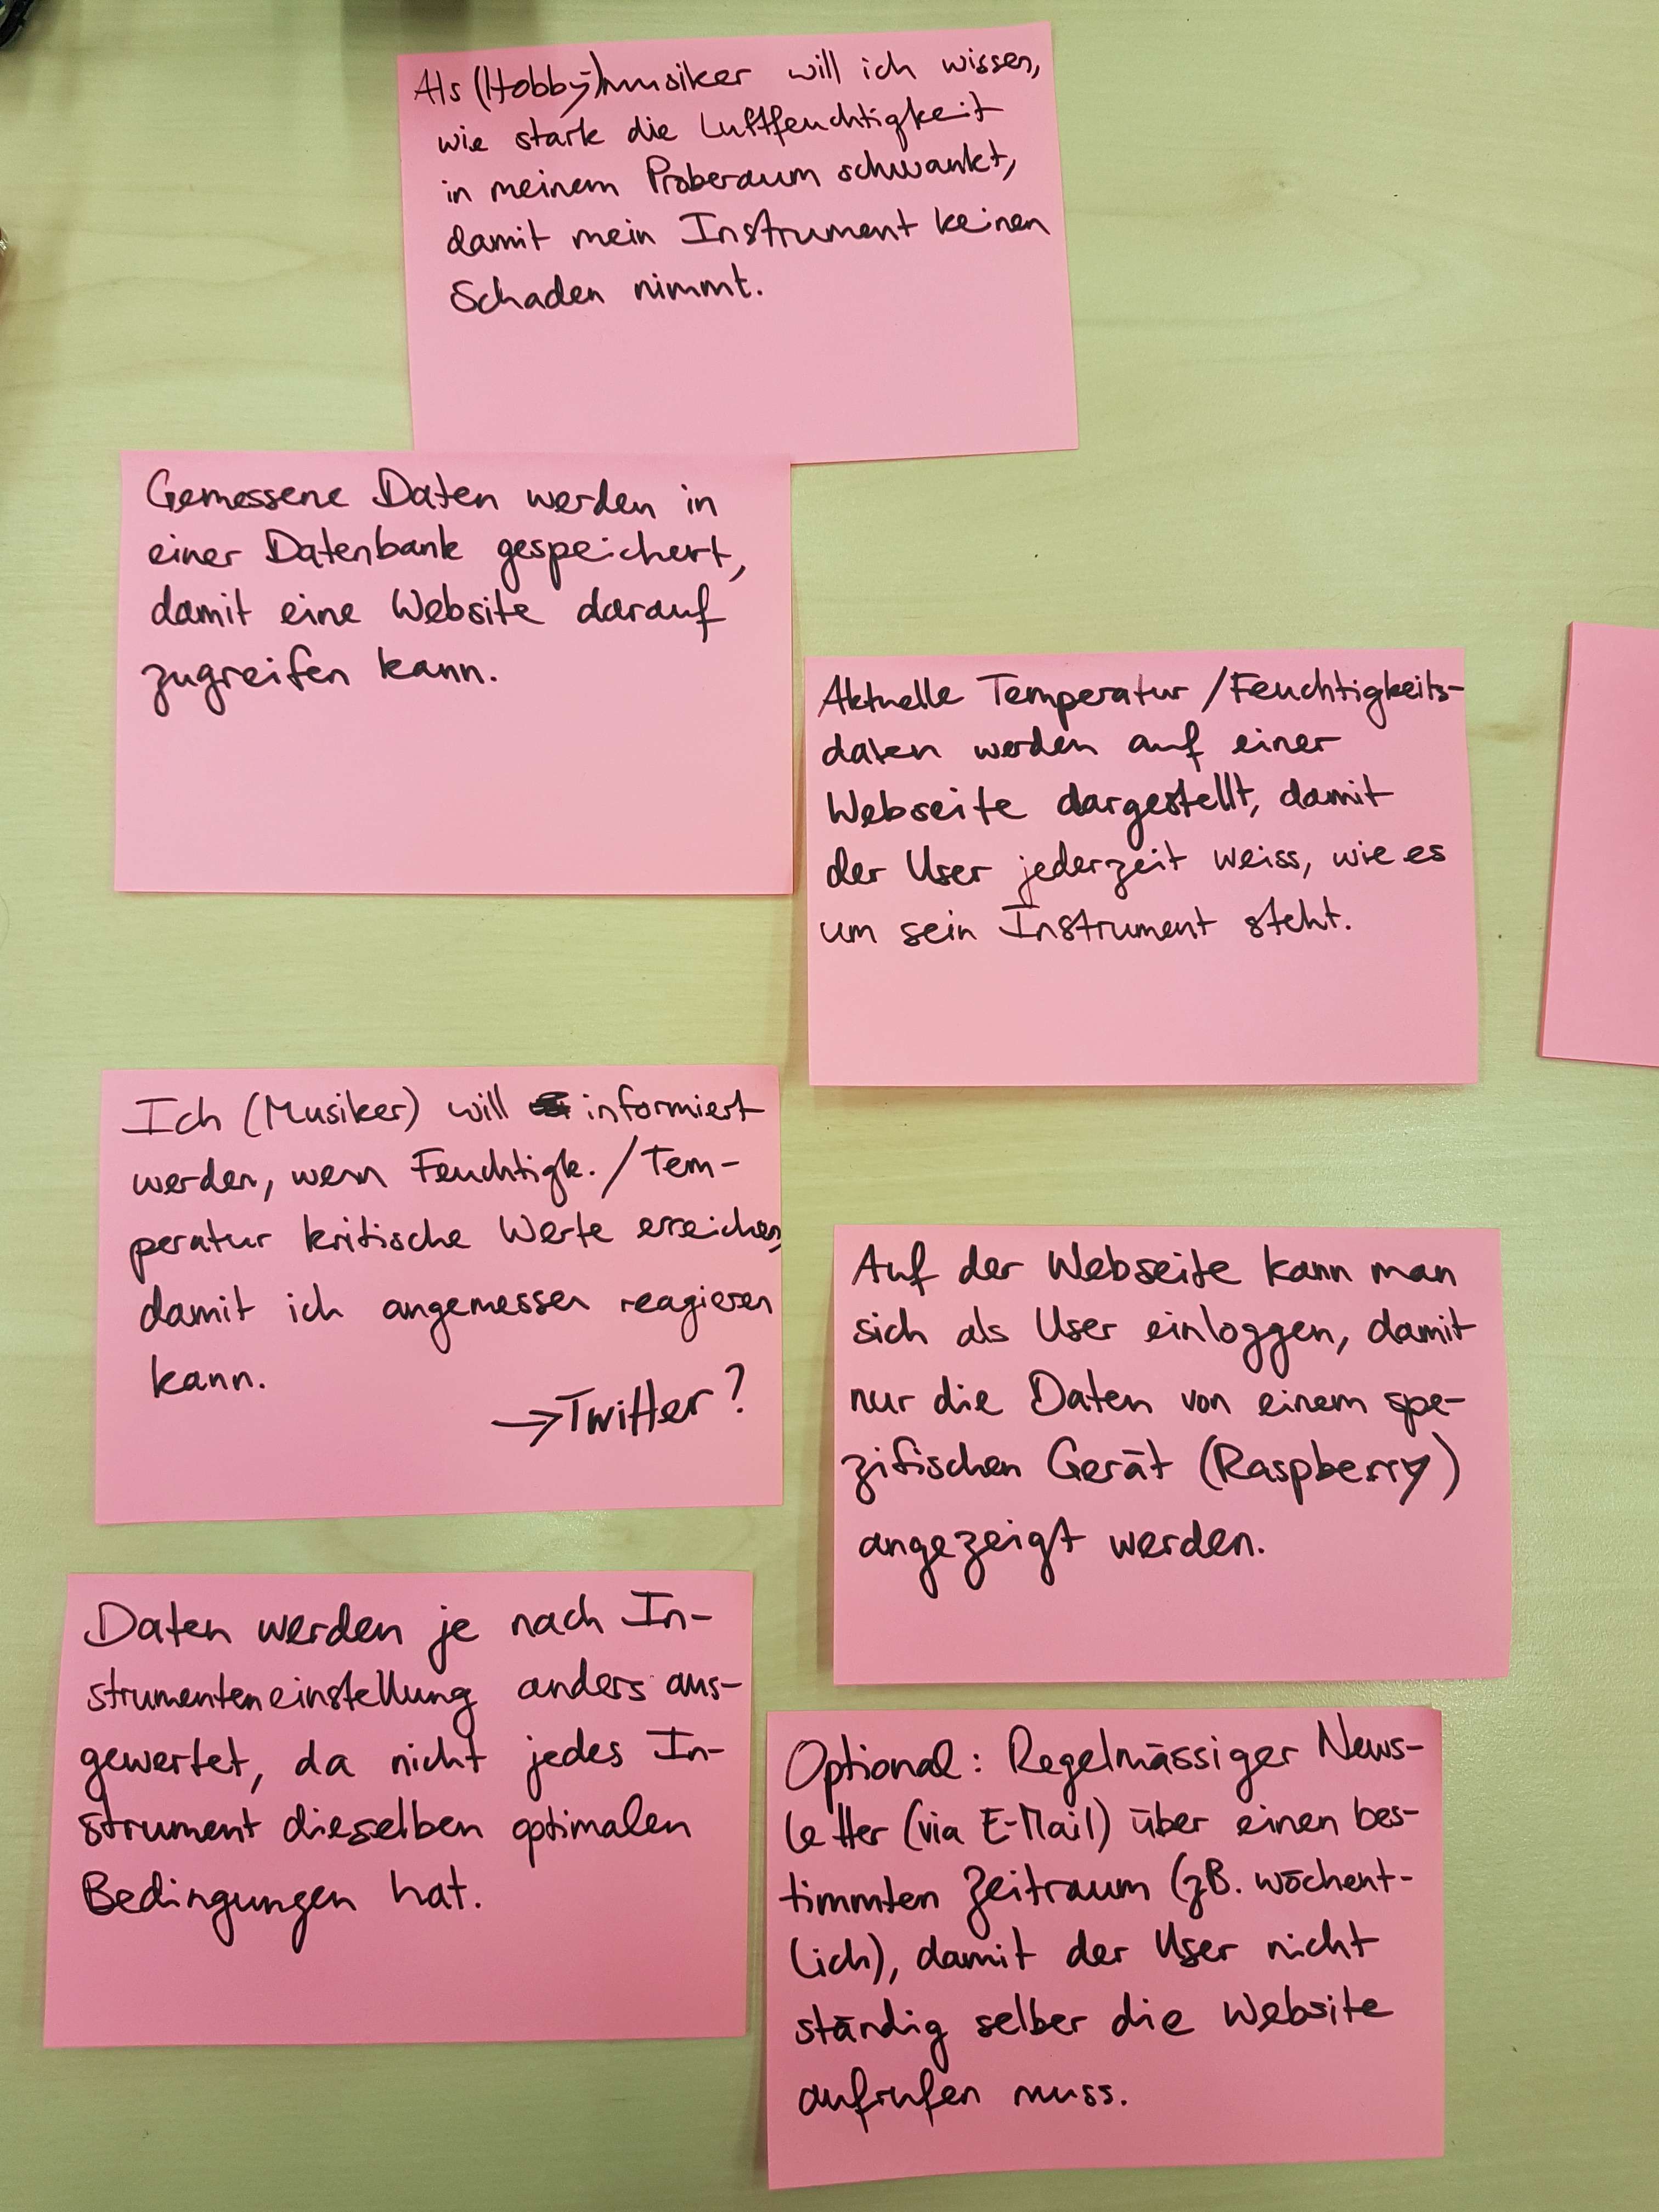 Als (Hobby-)musiker will ich wissen,
wie stark die Luftfeuchtigkeit
in meinem Proberaum schwankt,
damit mein Instrument keinen
Schaden nimmt.
Gemessene Daten werden in
einer Datenbank gespeichert,
damit eine Website darauf
zugreifen kann.
Aktuelle Temperatur/Feuchtigkeits-
daten werden auf einer
Webseite dargestellt, damit
der User jederzeit weiss, wie es
um sein Instrument steht.
Ich (Musiker) will informiert
werden, wenn Feuchtigk./Tem-
peratur kritische Werte erreichen,
damit ich angemessen reagieren
kann.
→Twitter?
Auf der Webseite kann man
sich als User einloggen, damit
nur die Daten von einem spe-
zifischen Gerät (Raspberry)
angezeigt werden.
Daten werden je nach In-
strumenteneinstellung anders aus-
gewertet, da nicht jedes In-
strument dieselben optimalen
Bedingungen hat.
Optional: Regelmässiger News-
letter (via E-Mail) über einen bes-
timmten Zeitraum (zB. wöchent-
lich), damit der User nicht
ständig selber die Website
aufrufen muss.